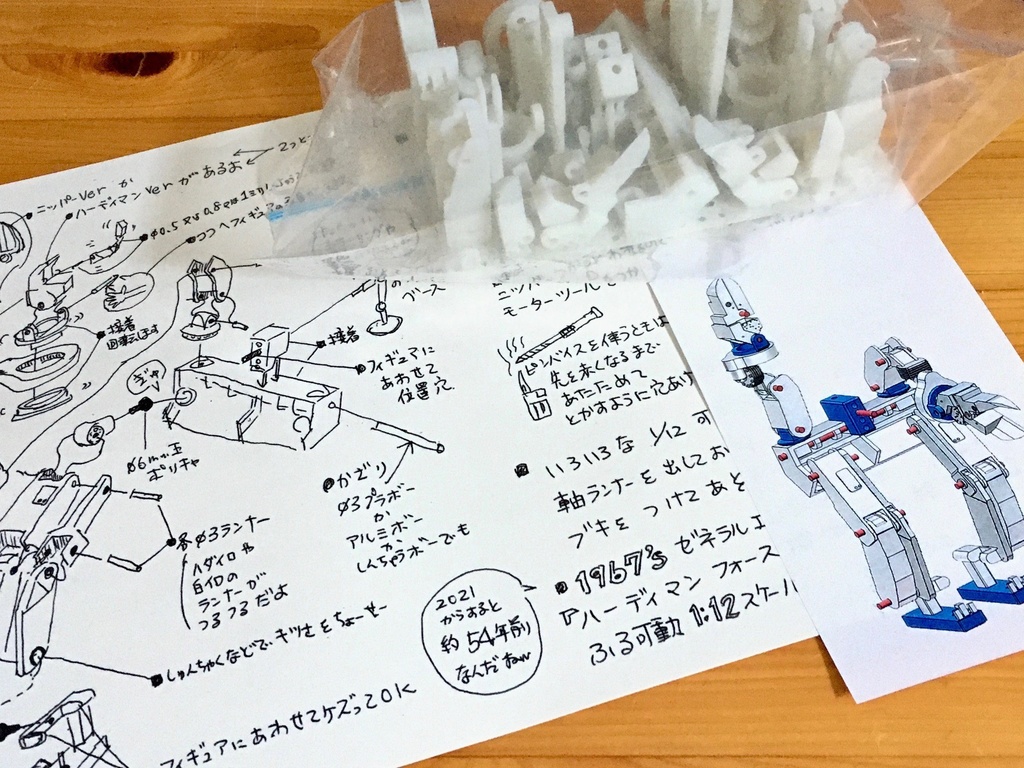 2つと
ニッパーVer か
ハーディマンVerがあるよ
φ0.5 又は 0.8 又は 1ミリ
ココへフィギュアの
接着
回転します
ベース
接着
フィギュアに
あわせて
位置穴
φ6mm玉
ポリキャ
かざり
φ3プラボー
か
アルミボー
か
しんちゅうボーでも
各φ3ランナー
ハダイロや
白イロの
ランナーが
つるつるだよ
しゅんちゃくなどでキツさをちょーせー
フィギュアにあわせてケズってOK
ニッパ
モーターツールで
ピンバイスを使うときは
先を赤くなるまで
あたためて
とかすように穴あけ
いろいろな 1/12 可
軸ランナーを出してお
ブキを つけてあと
1967's ゼネラルエ
『ハーディマン フォース
ふる可動 1:12スケール
2021
からすると
約54年前
なんだねw